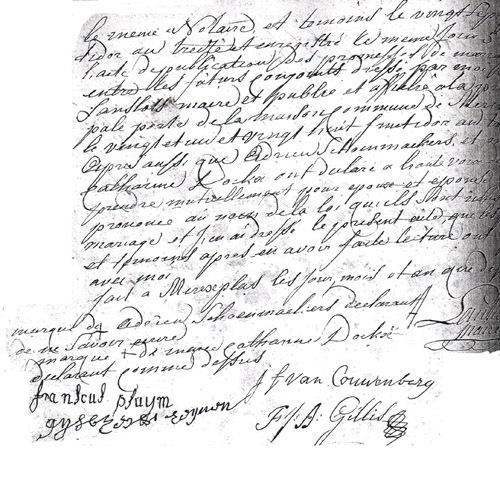 le meme Notaire et temoins le vingt
tidor au traité et enregistré le meme jour
l'acte de publication des promesses de mar
entre les futurs conjoints dressé par moi
Lanslots maire et publié et affiché a la
pale porte de la maison commune de Mer
le vingt et un et vingt huit fructidor au
apres aussi que Adrien Schoenmaekers et
Catharine Dockx ont declaré a haute voix
prendre mutuellement pour epoux et epouse
prononcé au nom de la loi qu'ils sont
mariage et j'en ai dressé le present acte que
et temoins apres en avoir faite lecture ont
avec moi
fait a Merxplas les jour mois et an que de
marque de Adrien Schoenmaekers declarant
de ne savoir ecrire
marque + de marie catharine Dockx
declarant comme dessus
franscus pluym
J F Van Couwenberg
F: A: Gillis